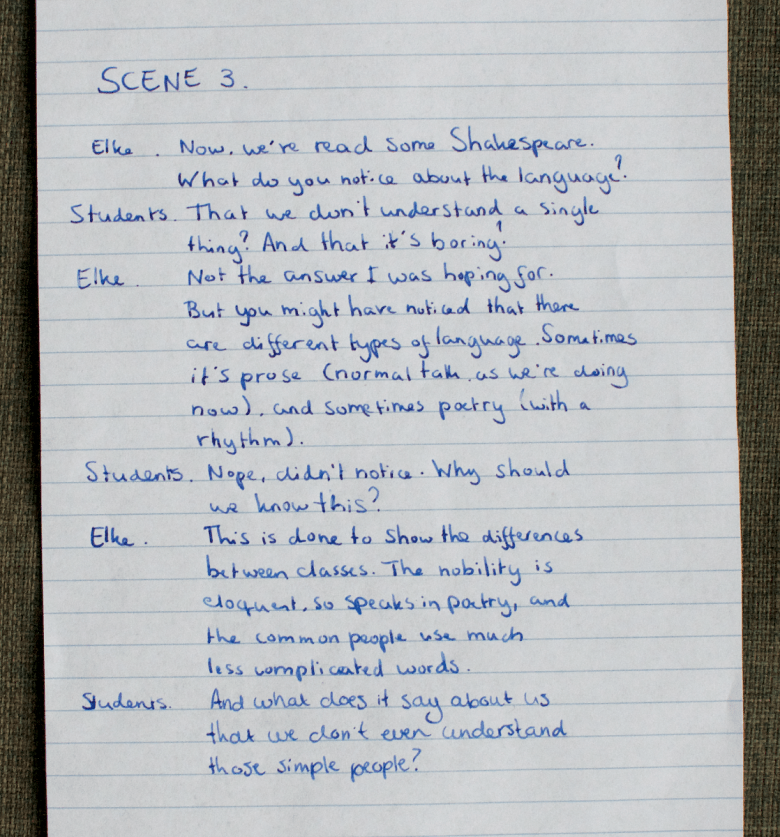 SCENE 3.
Elke. Now, we're read some Shakespeare.
What do you notice about the language?
Students. That we don't understand a single
thing? And that it's boring!
Elke. Not the answer I was hoping for.
But you might have noticed that there
are different types of language. Sometimes
it's prose (normal talk, as we're doing
now), and sometimes poetry (with a
rhythm).
Students. Nope, didn't notice. Why should
we know this?
Elke. This is done to show the differences
between classes. The nobility is
eloquent, so speaks in poetry, and
the common people use much
less complicated words.
Students. And what does it say about us
that we don't even understand
those simple people?